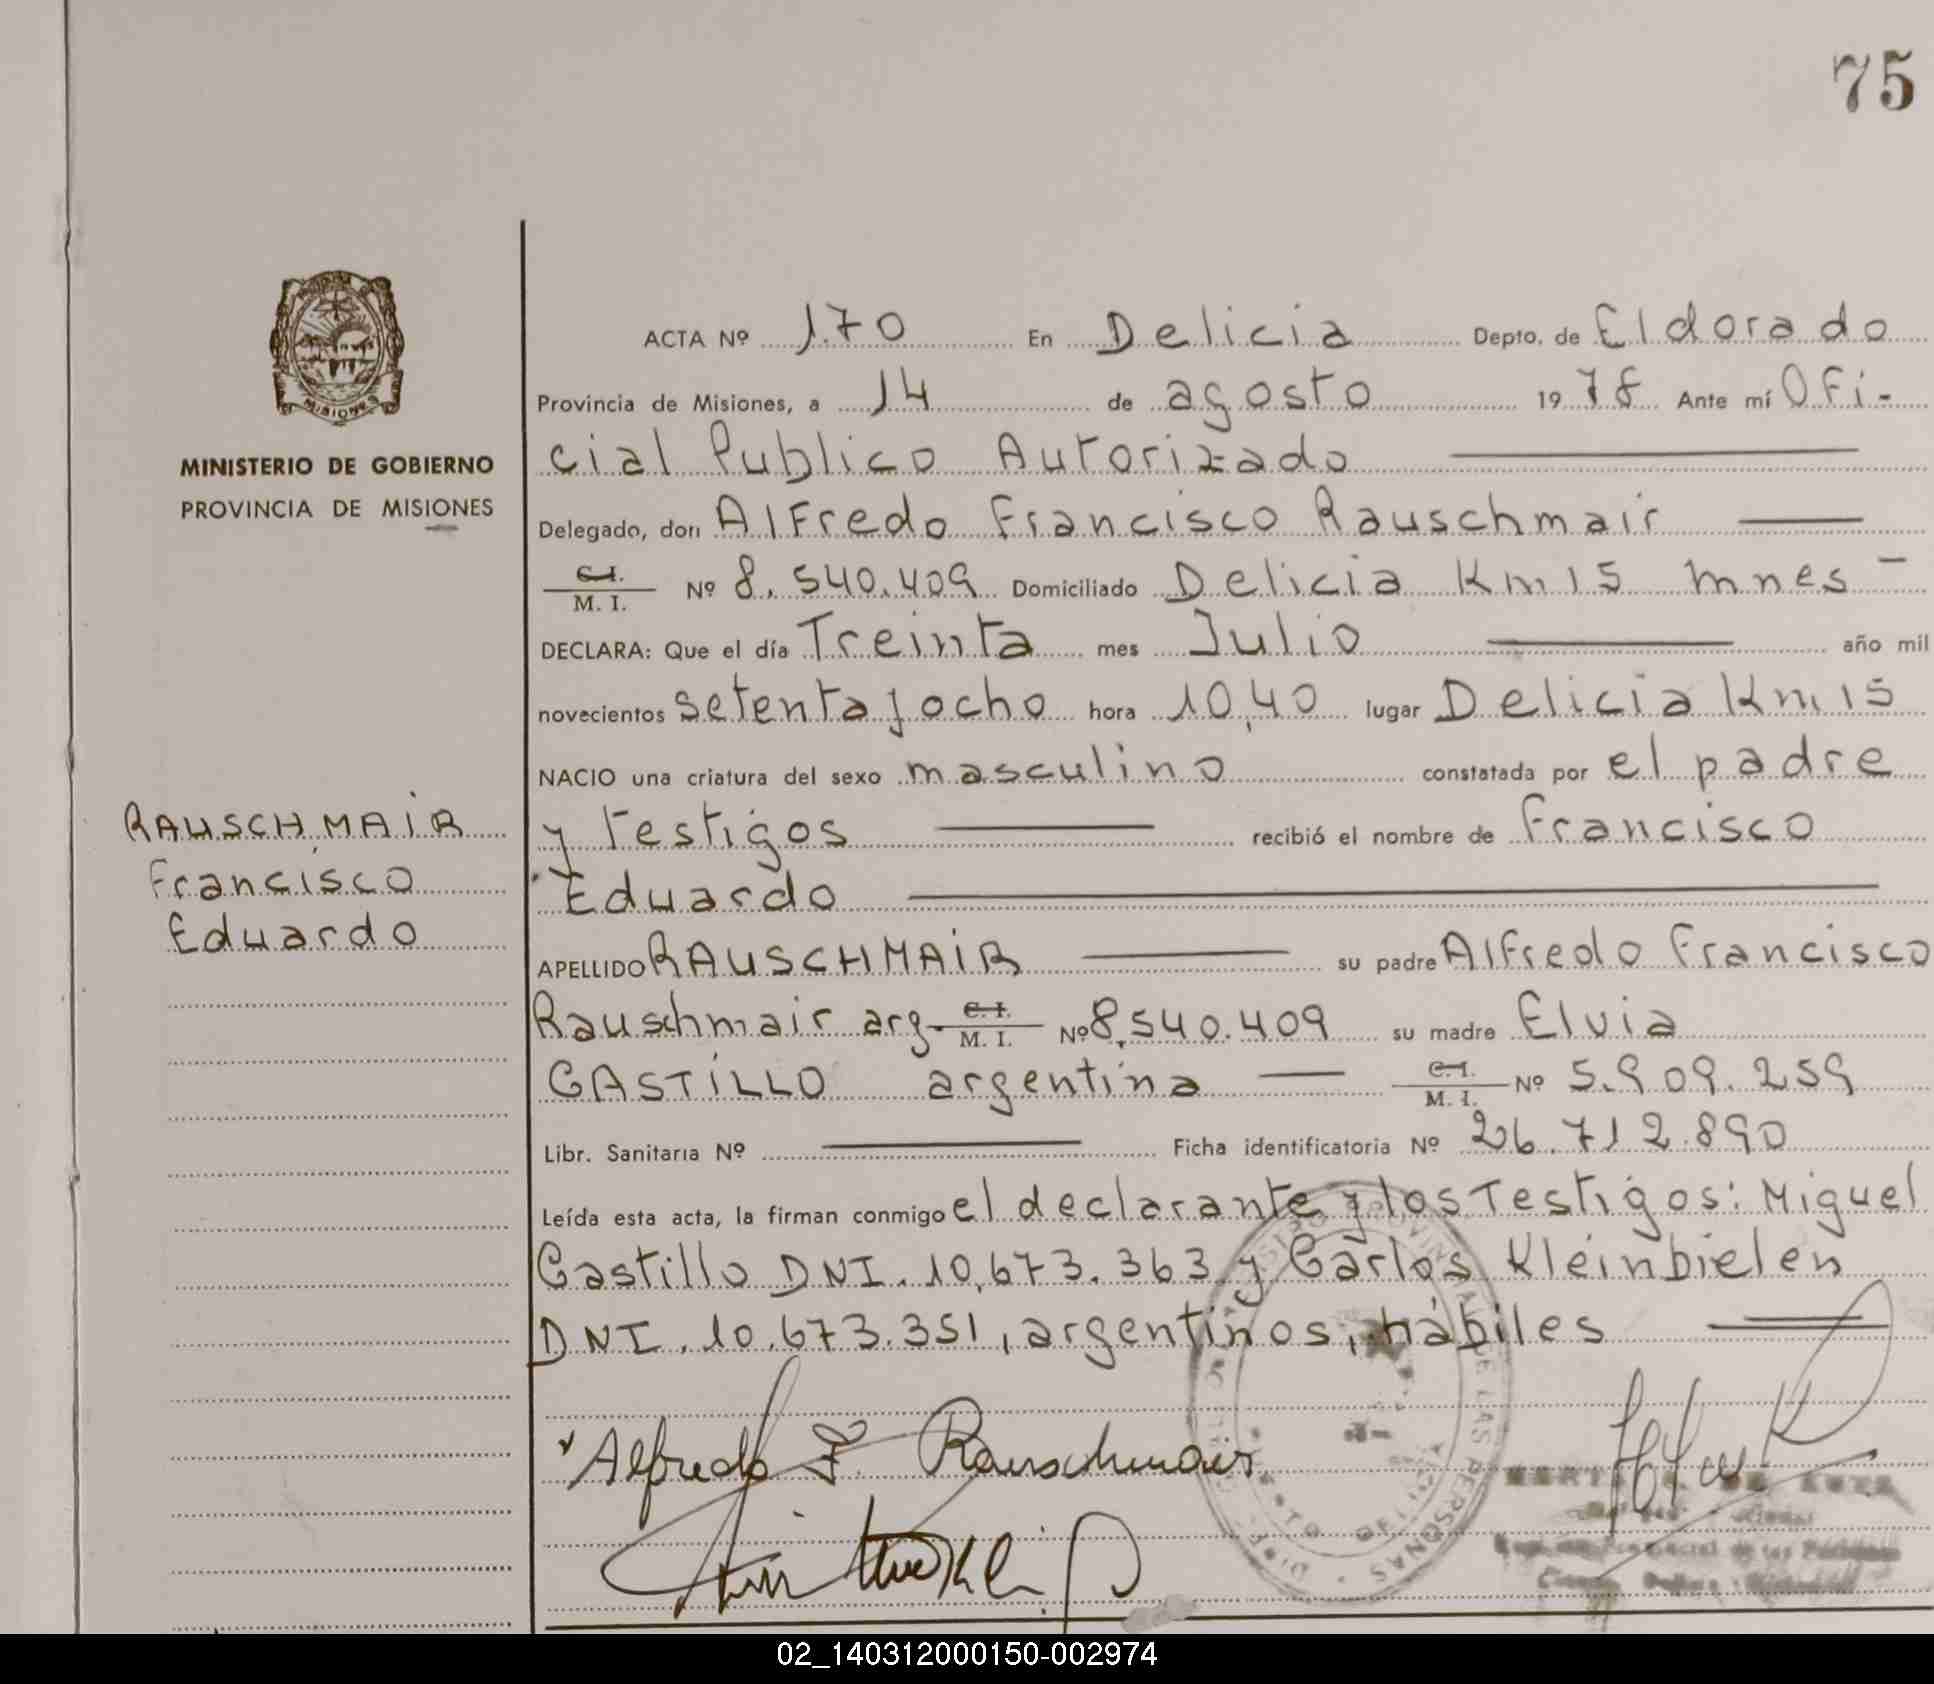 75
MISIONES
ACTA Nº 170 En Delicia Depto. de Eldorado
Provincia de Misiones, a 14 de agosto 1978 Ante mí Ofi-
MINISTERIO DE GOBIERNO
PROVINCIA DE MISIONES
cial Publico Autorizado
Delegado, don Alfredo Francisco Rauschmair
C.I. M. I. Nº 8.540.409 Domiciliado Delicia Km 15 mnes -
DECLARA: Que el día Treinta mes Julio año mil
novecientos setenta y ocho hora 10,40 lugar Delicia Km 15
NACIO una criatura del sexo masculino constatada por el padre
y testigos recibió el nombre de Francisco
Eduardo
RAUSCHMAIR
Francisco
Eduardo
APELLIDO RAUSCHMAIR su padre Alfredo Francisco
Rauschmair arg- C.I. M. I. Nº 8.540.409 su madre Elvia
CASTILLO argentina C.I. M. I. Nº 5.909.259
Libr. Sanitaria Nº Ficha identificatoria Nº 26.712.890
Leída esta acta, la firman conmigo el declarante y los Testigos: Miguel
Castillo DNI. 10.673.363 y Carlos Kleinbielen
DNI. 10.673.351, argentinos, hábiles
Alfredo F. Rauschmair
02_140312000150-002974